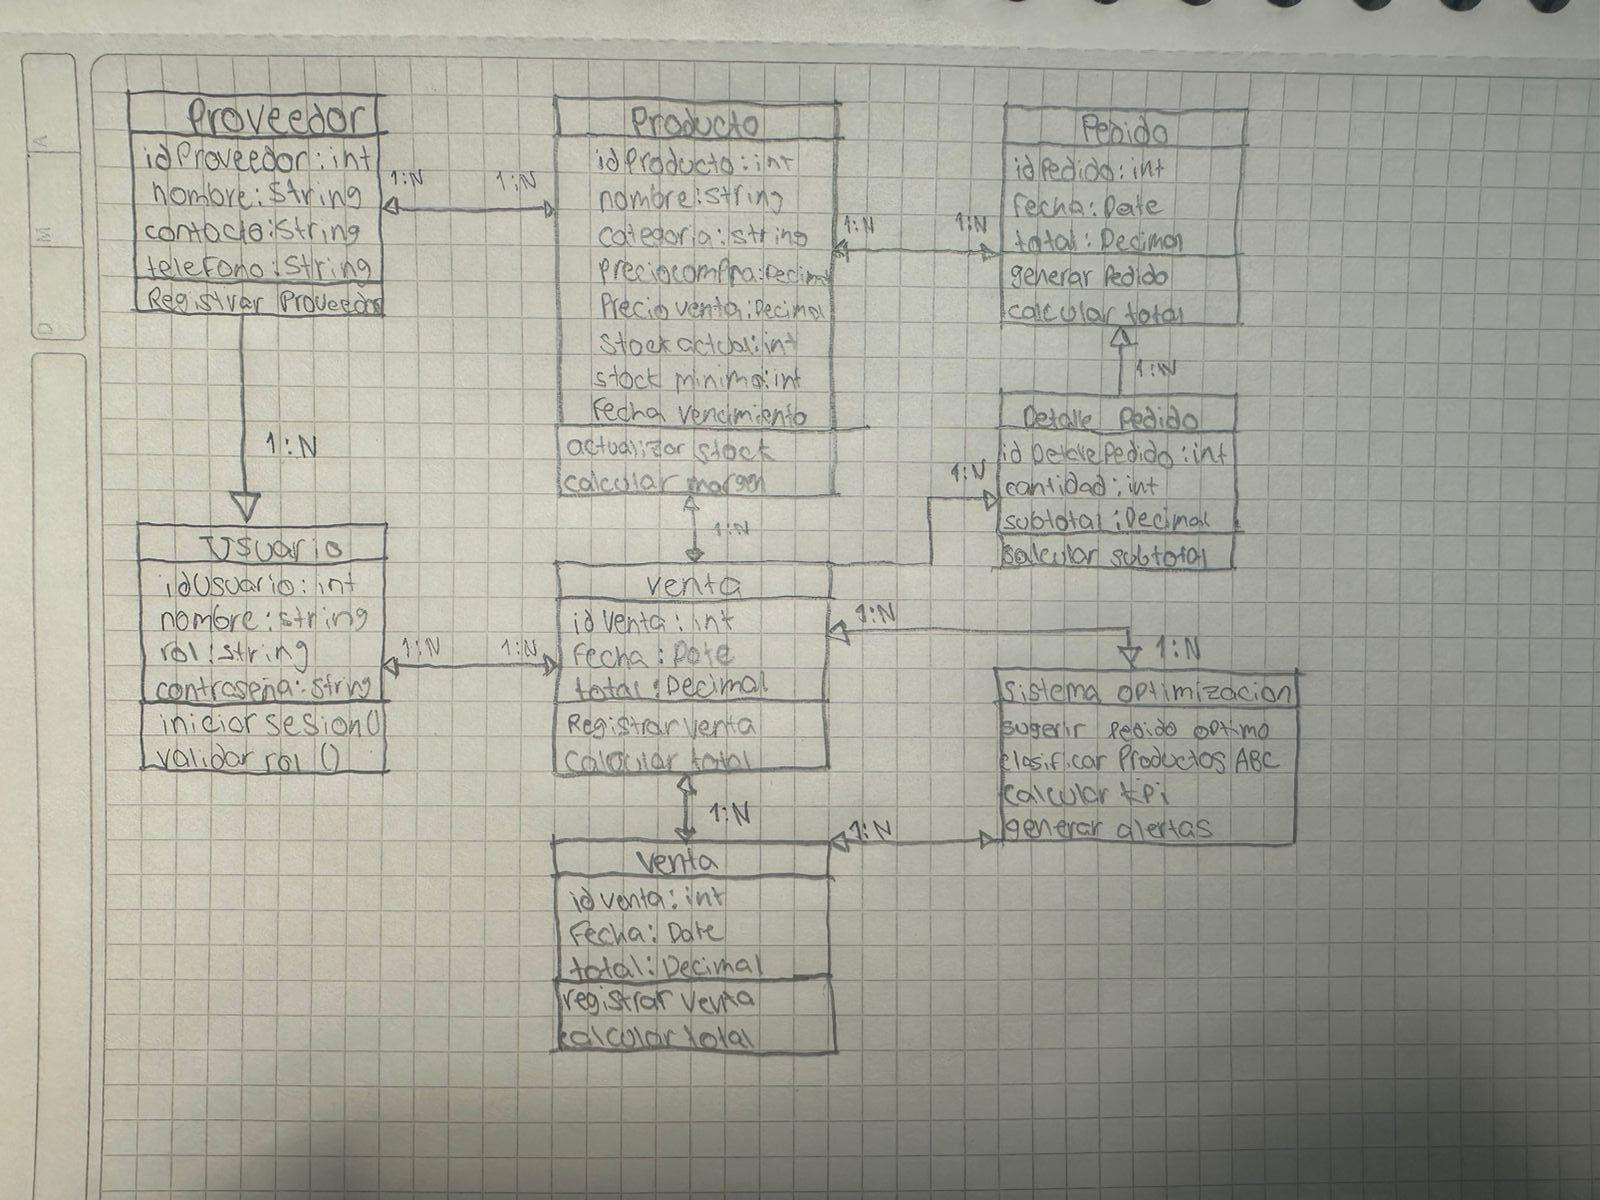 A
M
D
Proveedor
idProveedor: int
nombre: String
contacto: String
telefono: String
Registrar Proveedor
1:N
1:N
Producto
idProducto: int
nombre: String
categoria: String
preciocompra: Decimal
Precio venta: Decimal
stock actual: int
stock minimo: int
Fecha vencimiento
actualizar stock
calcular margen
1:N
1:N
Pedido
idPedido: int
fecha: Date
total: Decimal
generar Pedido
calcular total
1:N
Detalle Pedido
id DetallePedido: int
cantidad: int
subtotal: Decimal
calcular subtotal
1:N
1:N
Usuario
idUsuario: int
nombre: string
rol: string
contraseña: string
iniciar sesion()
validar rol ()
1:N
1:N
1:N
Venta
id Venta: int
Fecha: Date
total: Decimal
Registrar venta
Calcular total
1:N
1:N
Sistema optimizacion
sugerir Pedido optimo
clasificar Productos ABC
calcular KPi
generar alertas
1:N
1:N
Venta
id venta: int
Fecha: Date
total: Decimal
registrar venta
calcular total